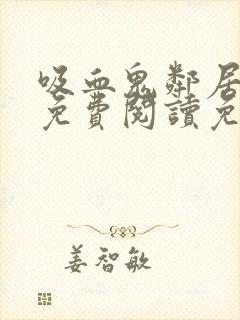 吸血鬼鄰居
免費閱讀免
姜智敏